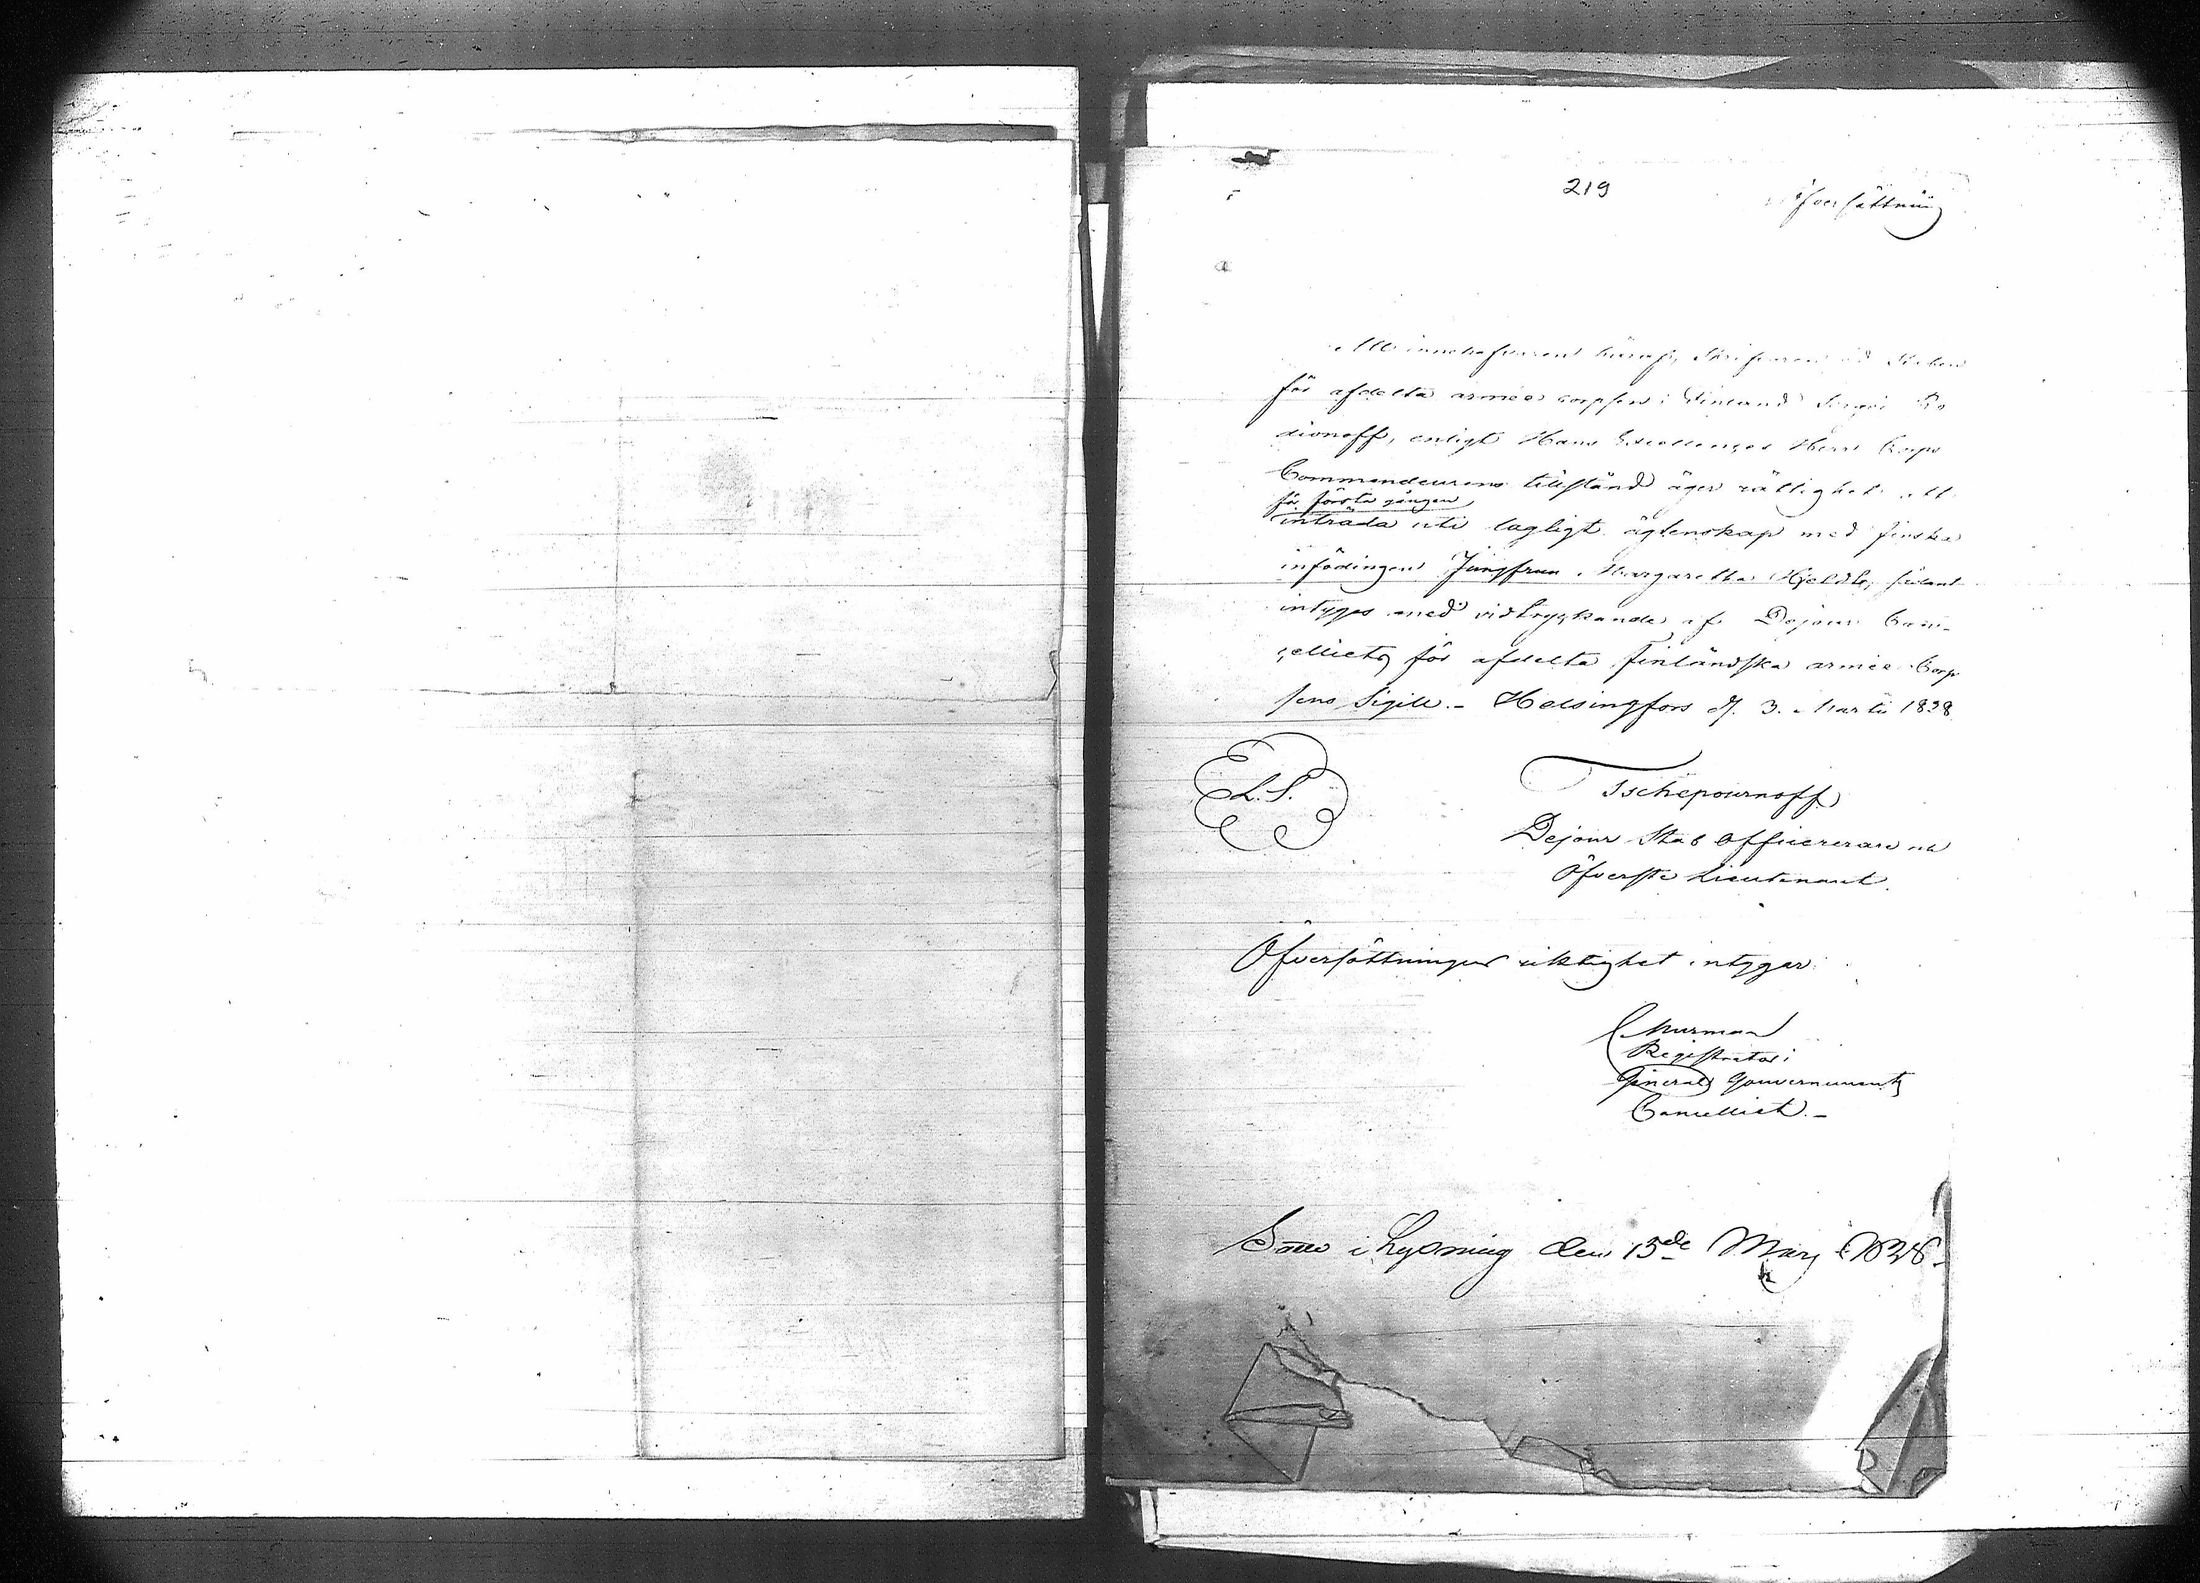 219
Öfversättning
Att innehafvaren häraf, Skrifvaren vid Staben
för afdelta armée corpsen i Finland Sergei Ro
dionoff, enligt Hans Excellences Herr Corps
Commendeurens tillstånd äger rättighet att
för första gången
inträda uti lagligt ägtenskap med finska
infödingen Jungfrun Margaretha Hjeldt, sådant
intygas med vidtryckande af Dejour Can-
celliets för afdelta Finländska armée Corp
sens Sigill.- Helsingfors d. 3. Martii 1838
L. S.
Tschepournoff
Dejour Stab Officerare och
Öfverste Lieutenant.
Öfversättningens riktighet intygar:
Murman
Registrator i
General Gouvernements
Cancelliet.-
i Lysning den 15de Mars 1838.-